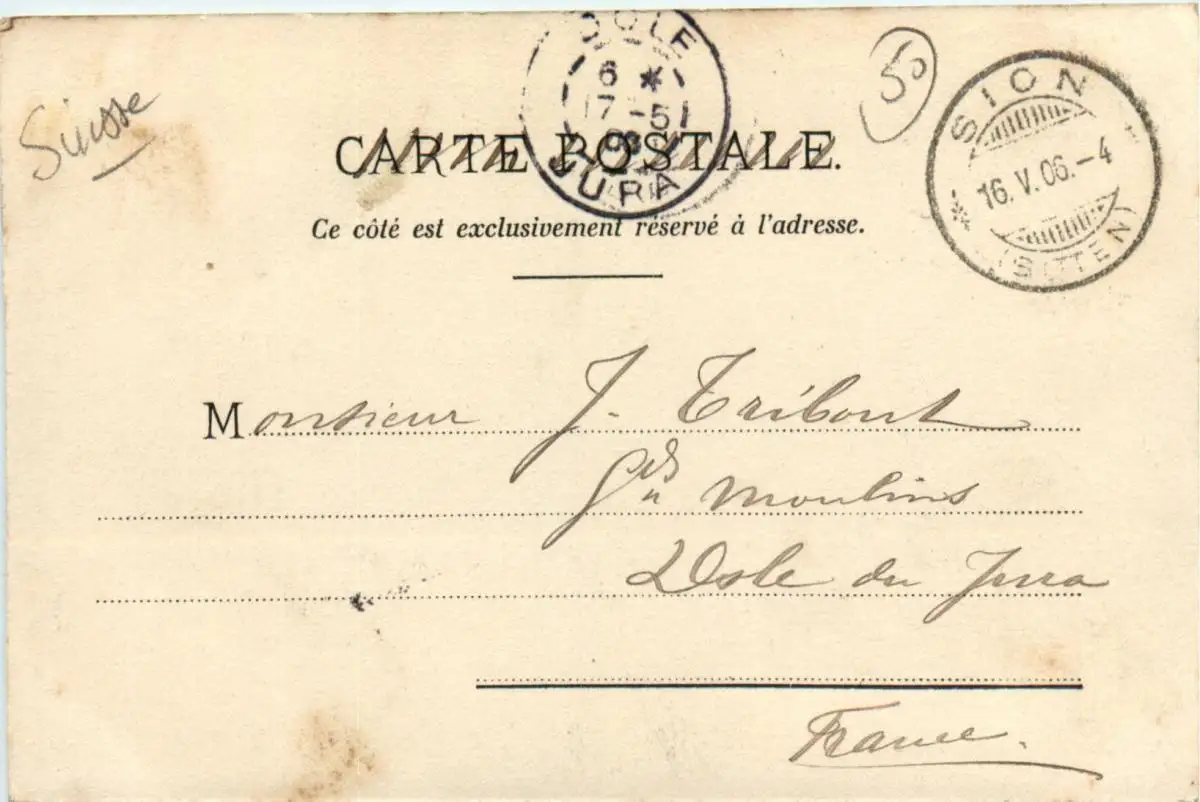 Suisse
DOLE
6 *
17 -5
06
JURA
50
SION
16.V.06.-4
(SITTEN)
CARTE POSTALE.
Ce côté est exclusivement réservé à l'adresse.
Monsieur J. Tribout
Gds Moulins
Dole du Jura
France.